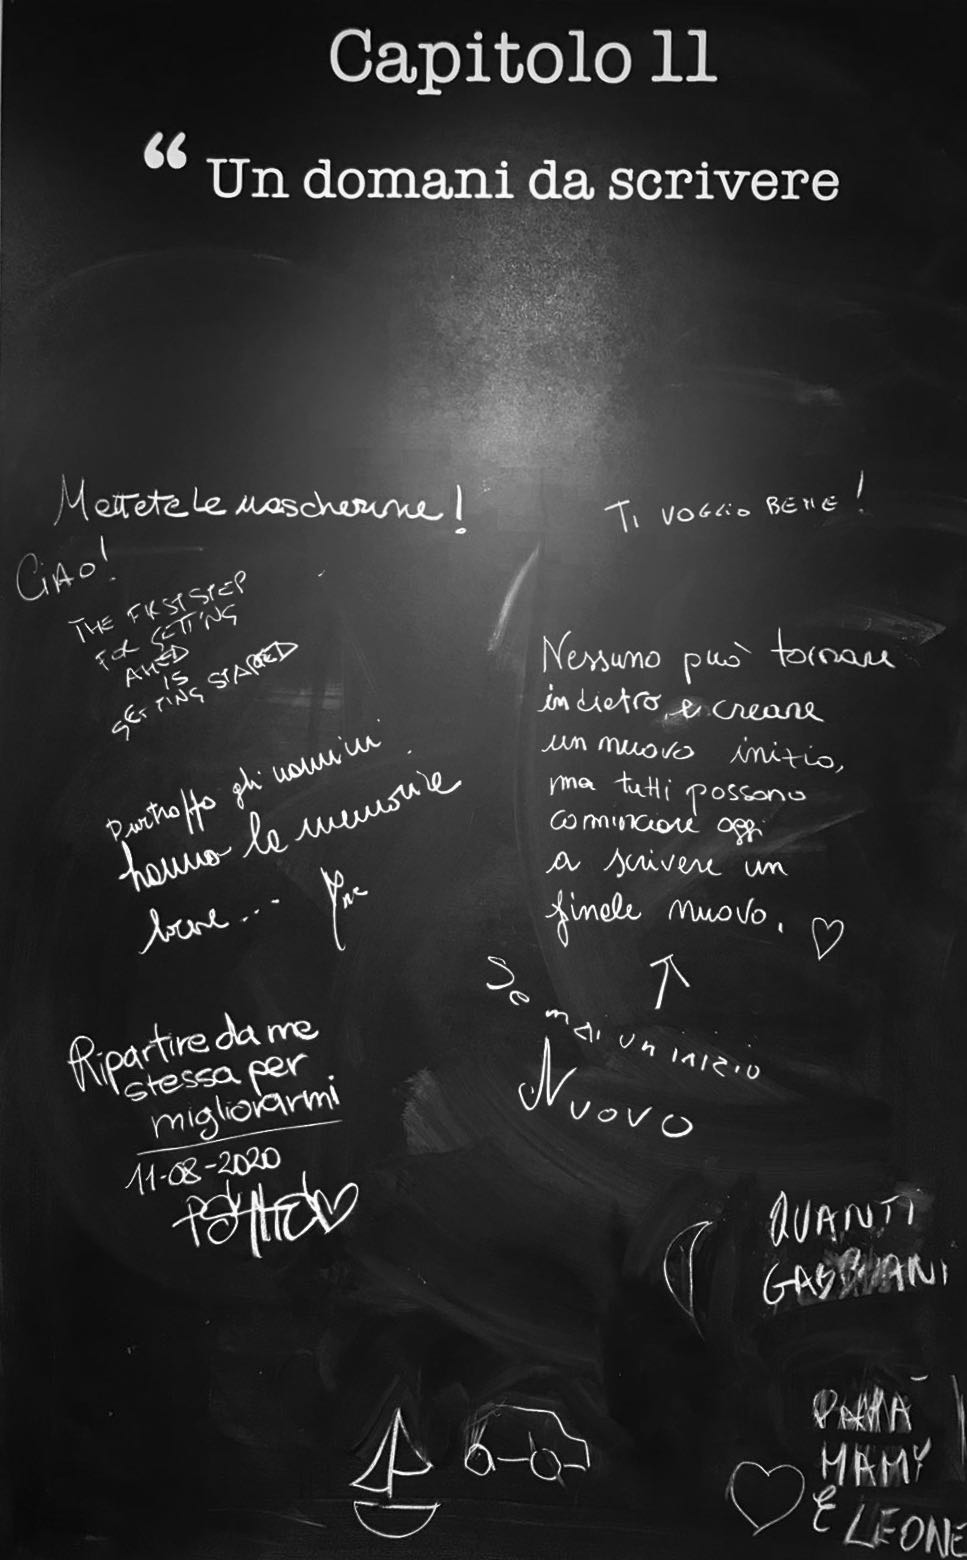 Capitolo 11
“ Un domani da scrivere
Mettete le mascherine!
TI VOGLIO BENE!
CIAO!
THE FIRST STEP
FOR GETTING
AHED
IS
GETTING STARTED
Nessuno può tornare
indietro, e creare
un nuovo inizio,
ma tutti possono
cominciare oggi
a scrivere un
finale nuovo.
Purtroppo gli uomini
hanno la memoria
breve...
Se mai un inizio
Nuovo
Ripartire da me
stessa per
migliorarmi
11-08-2020
QUANTI
GABBIANI
PAPÀ
MAMY
E LEONE